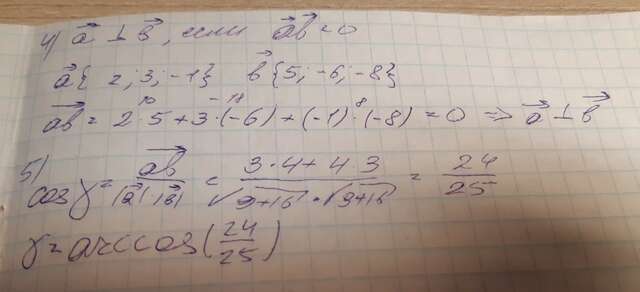 4) a⃗ ⊥ b⃗, если a⃗b⃗ = 0
a⃗{2; 3; -1} b⃗{5; -6; -8}
a⃗b⃗ = 2·5 + 3·(-6) + (-1)·(-8) = 0 => a⃗ ⊥ b⃗
10 -18 8
5) cos γ = a⃗b⃗ / |a⃗|·|b⃗| = 3·4 + 4·3 / √9+16 · √9+16 = 24/25
γ = arccos(24/25)